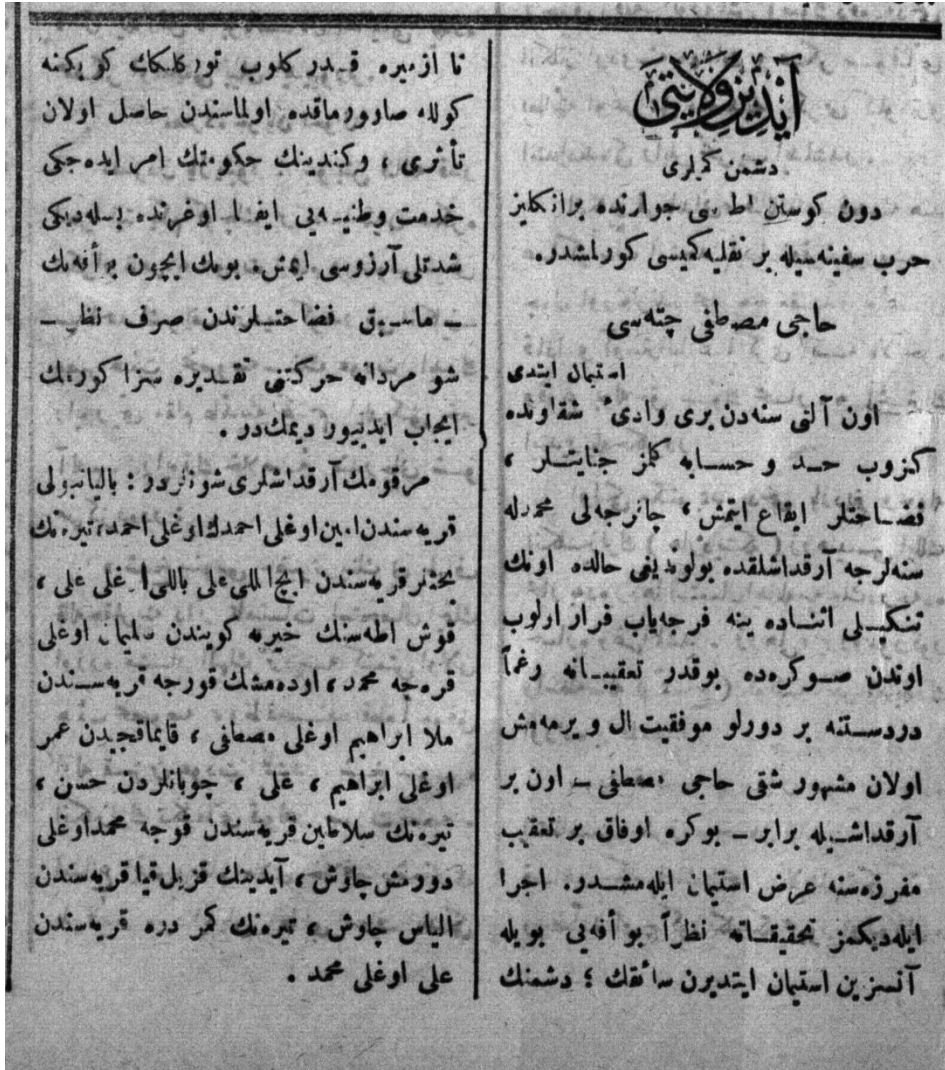 آیدین ولایتی
دشمن كمیلری
دون كوستن اطه‌سی جوارنده برانكلیز
حرب سفینه‌سیله بر نقلیه كمیسی كورلمشدر.
حاجی مصطفی چته‌سی
استیمان ایتدی
اون آلتی سنه‌دن بری وادیٔ شقاوتده
كزوب حـد و حسـابه كلمز جنایتـلر ،
فضـاحتلر ایقاع ایتمش ، چاقرجه‌لی محمدله
سنه‌لرجه آرقداشلقده بولوندیغی حالده اونك
تنكیـلی اثنـاده ینه فرجه‌یاب فرار اولوب
اوندن صـوكره‌ده بوقدر تعقیبـاته رغماً
دردسـتنه بر دورلو موفقیت ال ویرمه‌مش
اولان مشهور شقی حاجی مصطفی ــ اون بر
آرقداشـیله برابر ــ بوكره اوفاق بر تعقیب
مفرزه‌سنه عرض استیمان ایله‌مشـدر. اجرا
ایله‌دیكمز تحقیقـاته نظراً بو أفه‌یی بویله
آنسزین استیمان ایتدیرن سائقك ؛ دشمنك
تا ازمیره قـدر كلوب تورككلك كوكنه
كولله صاوورماقده اولماسندن حاصل اولان
تأثری ، وكندینك حكومتك امر ایده‌جكی
خدمت وطنیـه‌یی ایفـا اوغرنده بسله‌دیكی
شدتلی آرزوسی ایمش. بونك ایچون بو أفه‌نك
ــ ماسـبق فضاحتـلرندن صرف نظر ــ
شو مردانه حركتنی تقـدیره سزا كورمك
ایجاب ایدییور دیمك‌در .
مرقومك آرقداشلری شونلردر : بالیانبولی
قریه‌سندن امین اوغلی احمدك اوغلی احمد، تیره‌نك
قریه‌سندن ایچ اللی علی باللی اوغلی علی ،
قوش اطه‌سنك خیریه كویندن سلیمان اوغلی
قره‌جه محمد ، اوده‌مشك قورجه قریه‌سـندن
ملا ابراهیم اوغلی مصطفی ، قایماقجیدن عمر
اوغلی ابراهیم ، علی ، چوبانلردن حسن ،
تیره‌نك سلاطین قریه‌سندن قوجه محمداوغلی
دورمش چاوش ، آیدینك قزیل قیا قریه‌سندن
الیاس چاوش ، تیره‌نك كمر دره قریه‌سندن
علی اوغلی محمد .